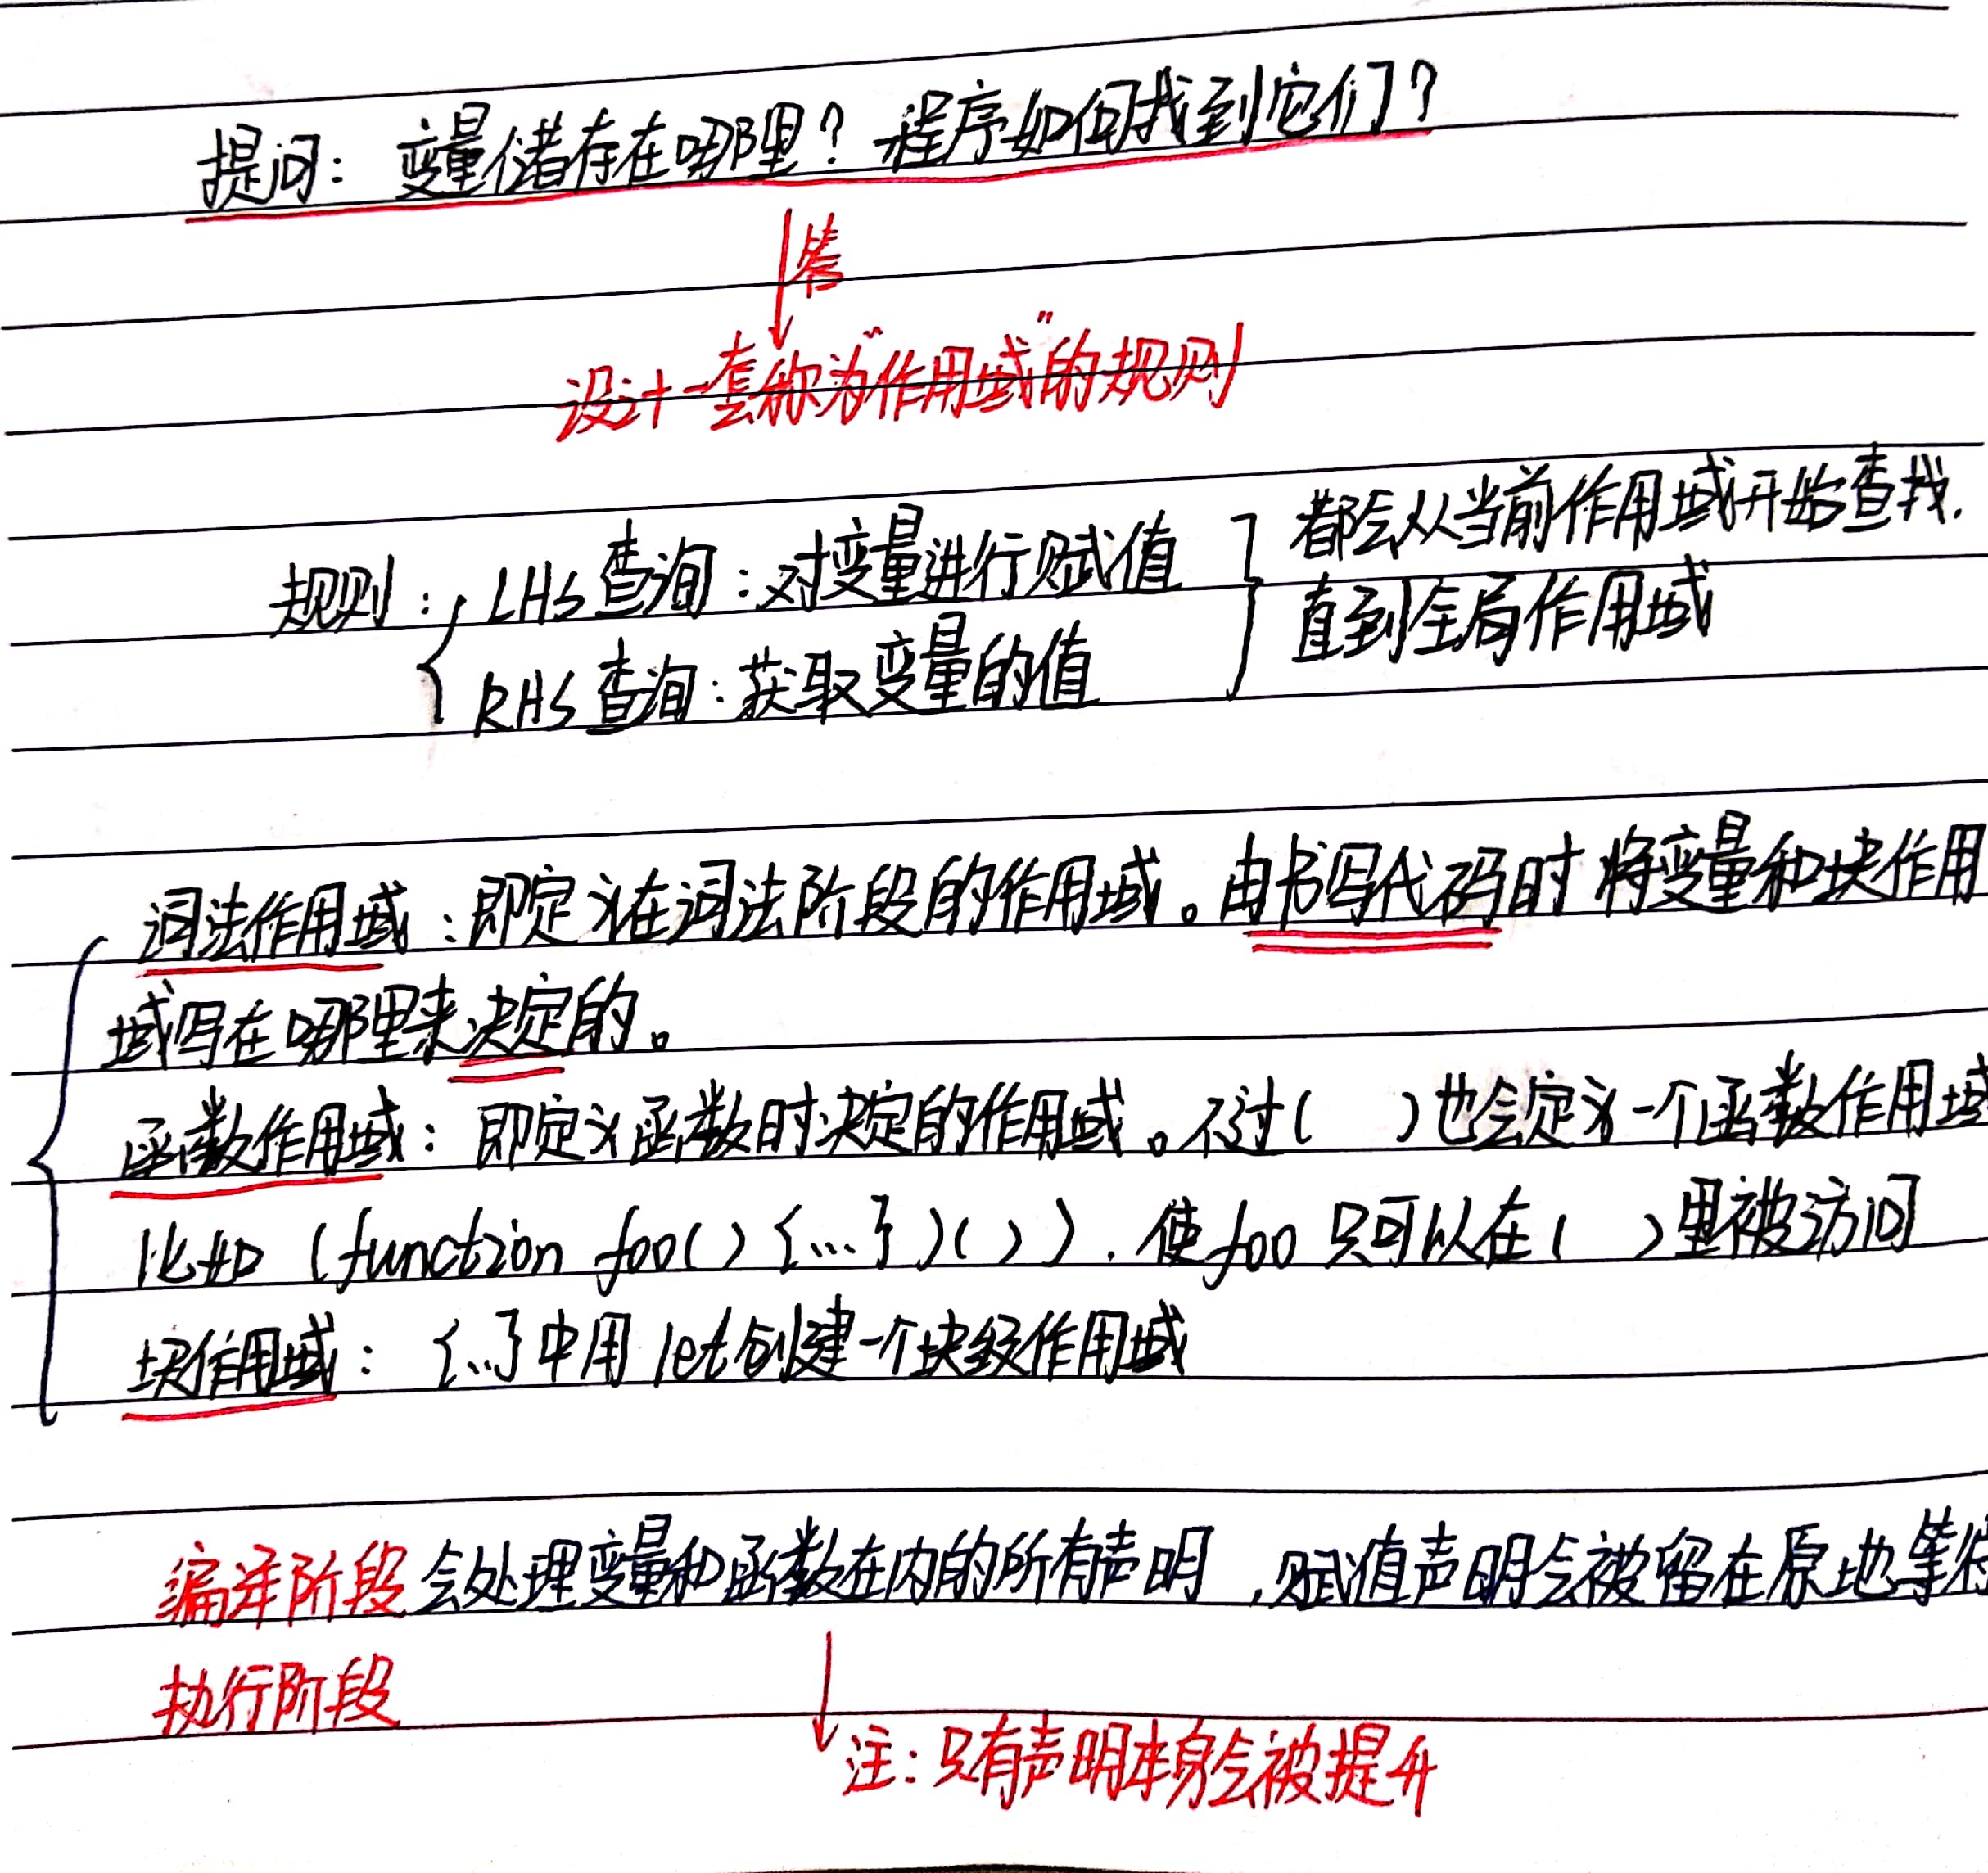 提问：变量储存在哪里？程序如何找到它们？
答
设计一套称为"作用域"的规则
规则：LHS查询：对变量进行赋值
RHS查询：获取变量的值
都会从当前作用域开始查找.
直到全局作用域
词法作用域：即定义在词法阶段的作用域。由书写代码时将变量和块作用
域写在哪里来决定的。
函数作用域：即定义函数时决定的作用域。不过( )也会定义一个函数作用域
比如 (function foo(){...})()). 使foo只可以在( )里被访问
块作用域：{...}中用let创建一个块级作用域
编译阶段会处理变量和函数在内的所有声明,赋值声明会被留在原地等待
执行阶段
注：只有声明本身会被提升